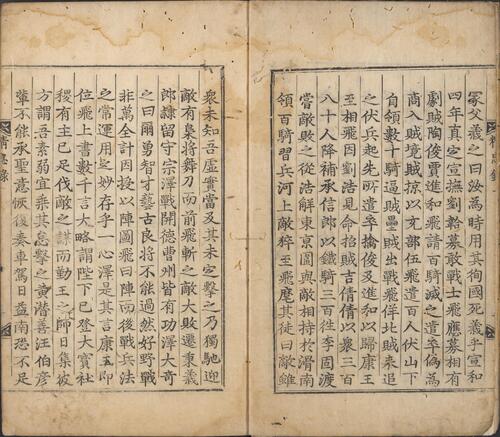 冢父義之曰汝為時用其徇國死義乎宣和
四年真定宣撫劉韐募敢戰士飛應募相有
劇賊陶俊賈進和飛請百騎滅之遣卒偽為
商入賊境賊掠以充部伍飛遣百人伏山下
自領數十騎逼賊壘賊出戰飛佯北賊來追
之伏兵起先所遣卒擒俊及進和以歸康王
至相飛因劉浩見命招賊吉倩倩以衆三百
八十人降補承信郎以鐵騎三百往李固渡
嘗敵敗之從浩解東京圍與敵相持於滑南
領百騎習兵河上敵猝至飛麾其徒曰敵雖
衆未知吾虛實當及其未定擊之乃獨馳迎
敵有梟將舞刀而前飛斬之敵大敗遷秉義
郎隷留守宗澤戰開德曹州皆有功澤大奇
之曰爾勇智才藝古良將不能過然好野戰
非萬全計因授以陣圖飛曰陣而後戰兵法
之常運用之妙存乎一心澤是其言康王即
位飛上書數千言大略謂陛下已登大寶社
稷有主已足伐敵之謀而勤王之師日集彼
方謂吾素弱宜乘其怠擊之黃潛善汪伯彥
輩不能承聖意恢復奏車駕日益南恐不足